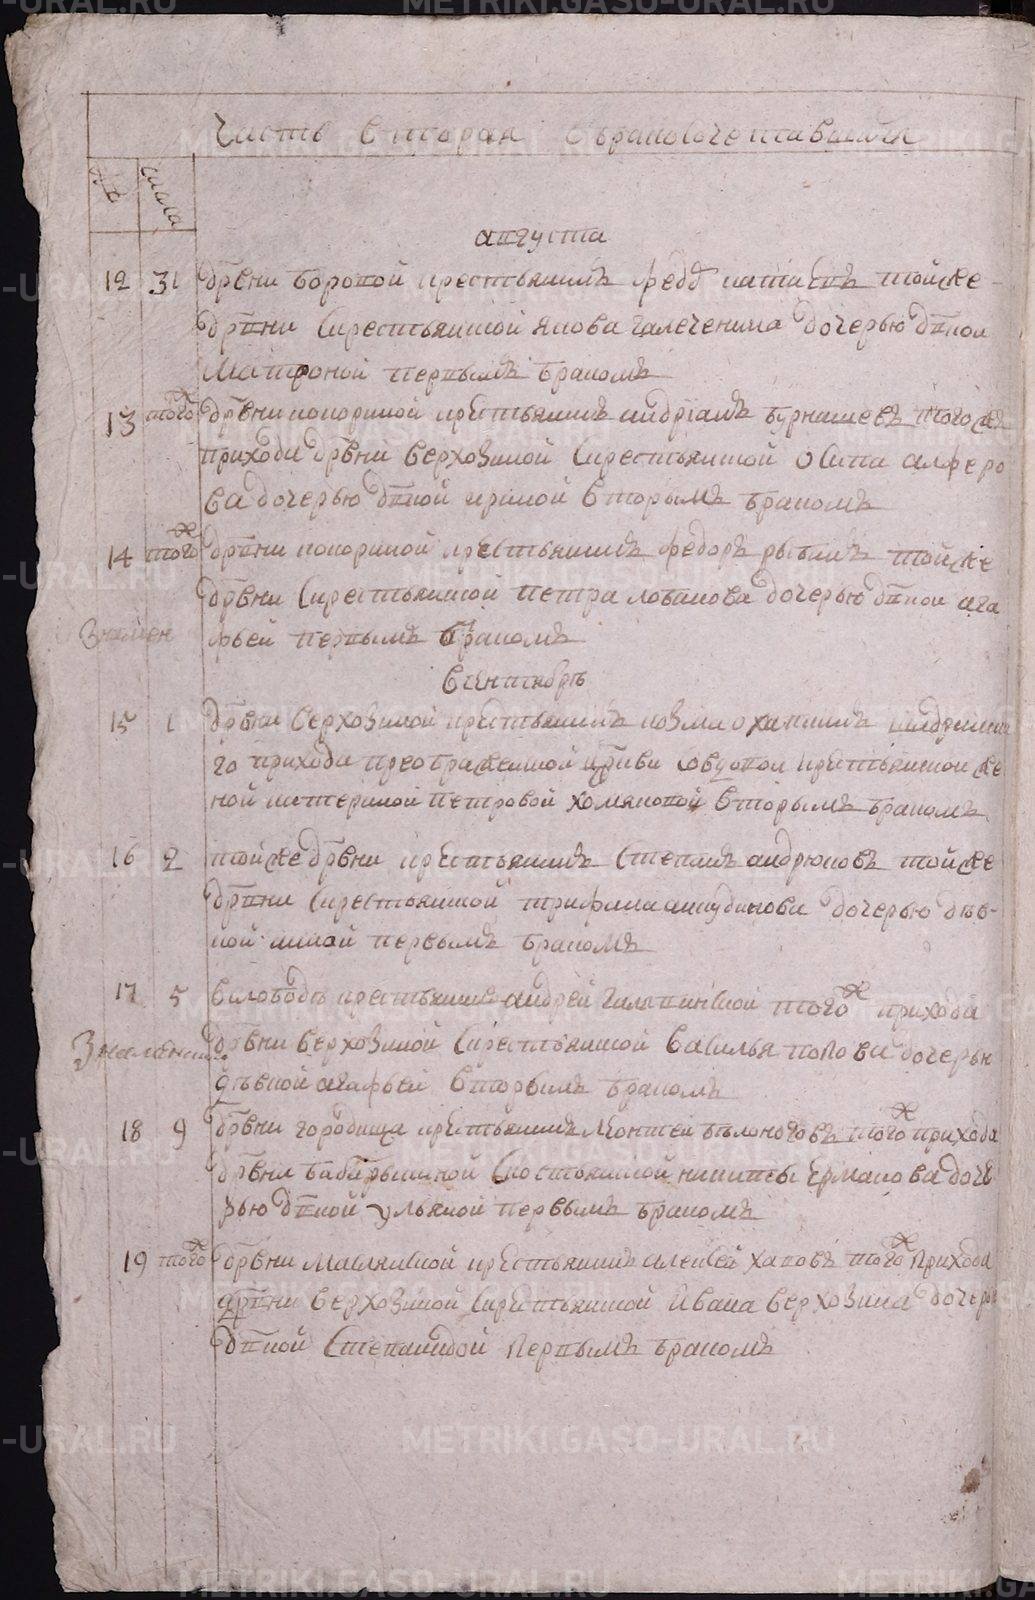 Часть вторая о бракосочетавшихся
№ числа
августа
12 31 дрвни боровой крестьянинъ федо тойже
дрвни скрестьянской якова галеченина дочерью двкою
матроной первымъ бракомъ
13 тогож дрвни покориной крстьянинъ андріанъ бурнашевъ тогож
прихода дрвни верхозиной скрестьянской осипа алферо
ва дочерью двкой ириной вторымъ бракомъ
14 тогож дрвни покориной крестьянинъ федоръ тойже
дрвни скрестьянской петра лобанова дочерью двкой ага
фьей первымъ бракомъ
Знамен
в сентябрѣ
15 1 дрвни верхозиной крстьянинъ козма оханинъ
го прихода преображенской цркви совдовой крстьянской же
ной катериной петровой хомяковой вторымъ бракомъ
16 2 тойже дрвни крстьянинъ степанъ андрюковъ тойже
дрвни скрестьянской трифана анкудинова дочерью дѣв-
кой анной первымъ бракомъ
17 5 в слободѣ крестьянинъ андрей тогож прихода
Знаменск. дрвни верхозиной скрестьянской василья попова дочерью
дѣвкой агафьей вторымъ бракомъ
18 9 дрвни городища крстьянинъ леонтей бѣлоноговъ тогож прихода
дрвни бабарыкиной никиты ермакова доче
рью двкой ульяной первымъ бракомъ
19 тогож дрвни маслянской крестьянинъ алексей хаповъ тогож прихода
дрвни верхозиной скрстьянской ивана верхозина дочерью
двкой степанидой первымъ бракомъ
METRIKI.GASO-URAL.RU